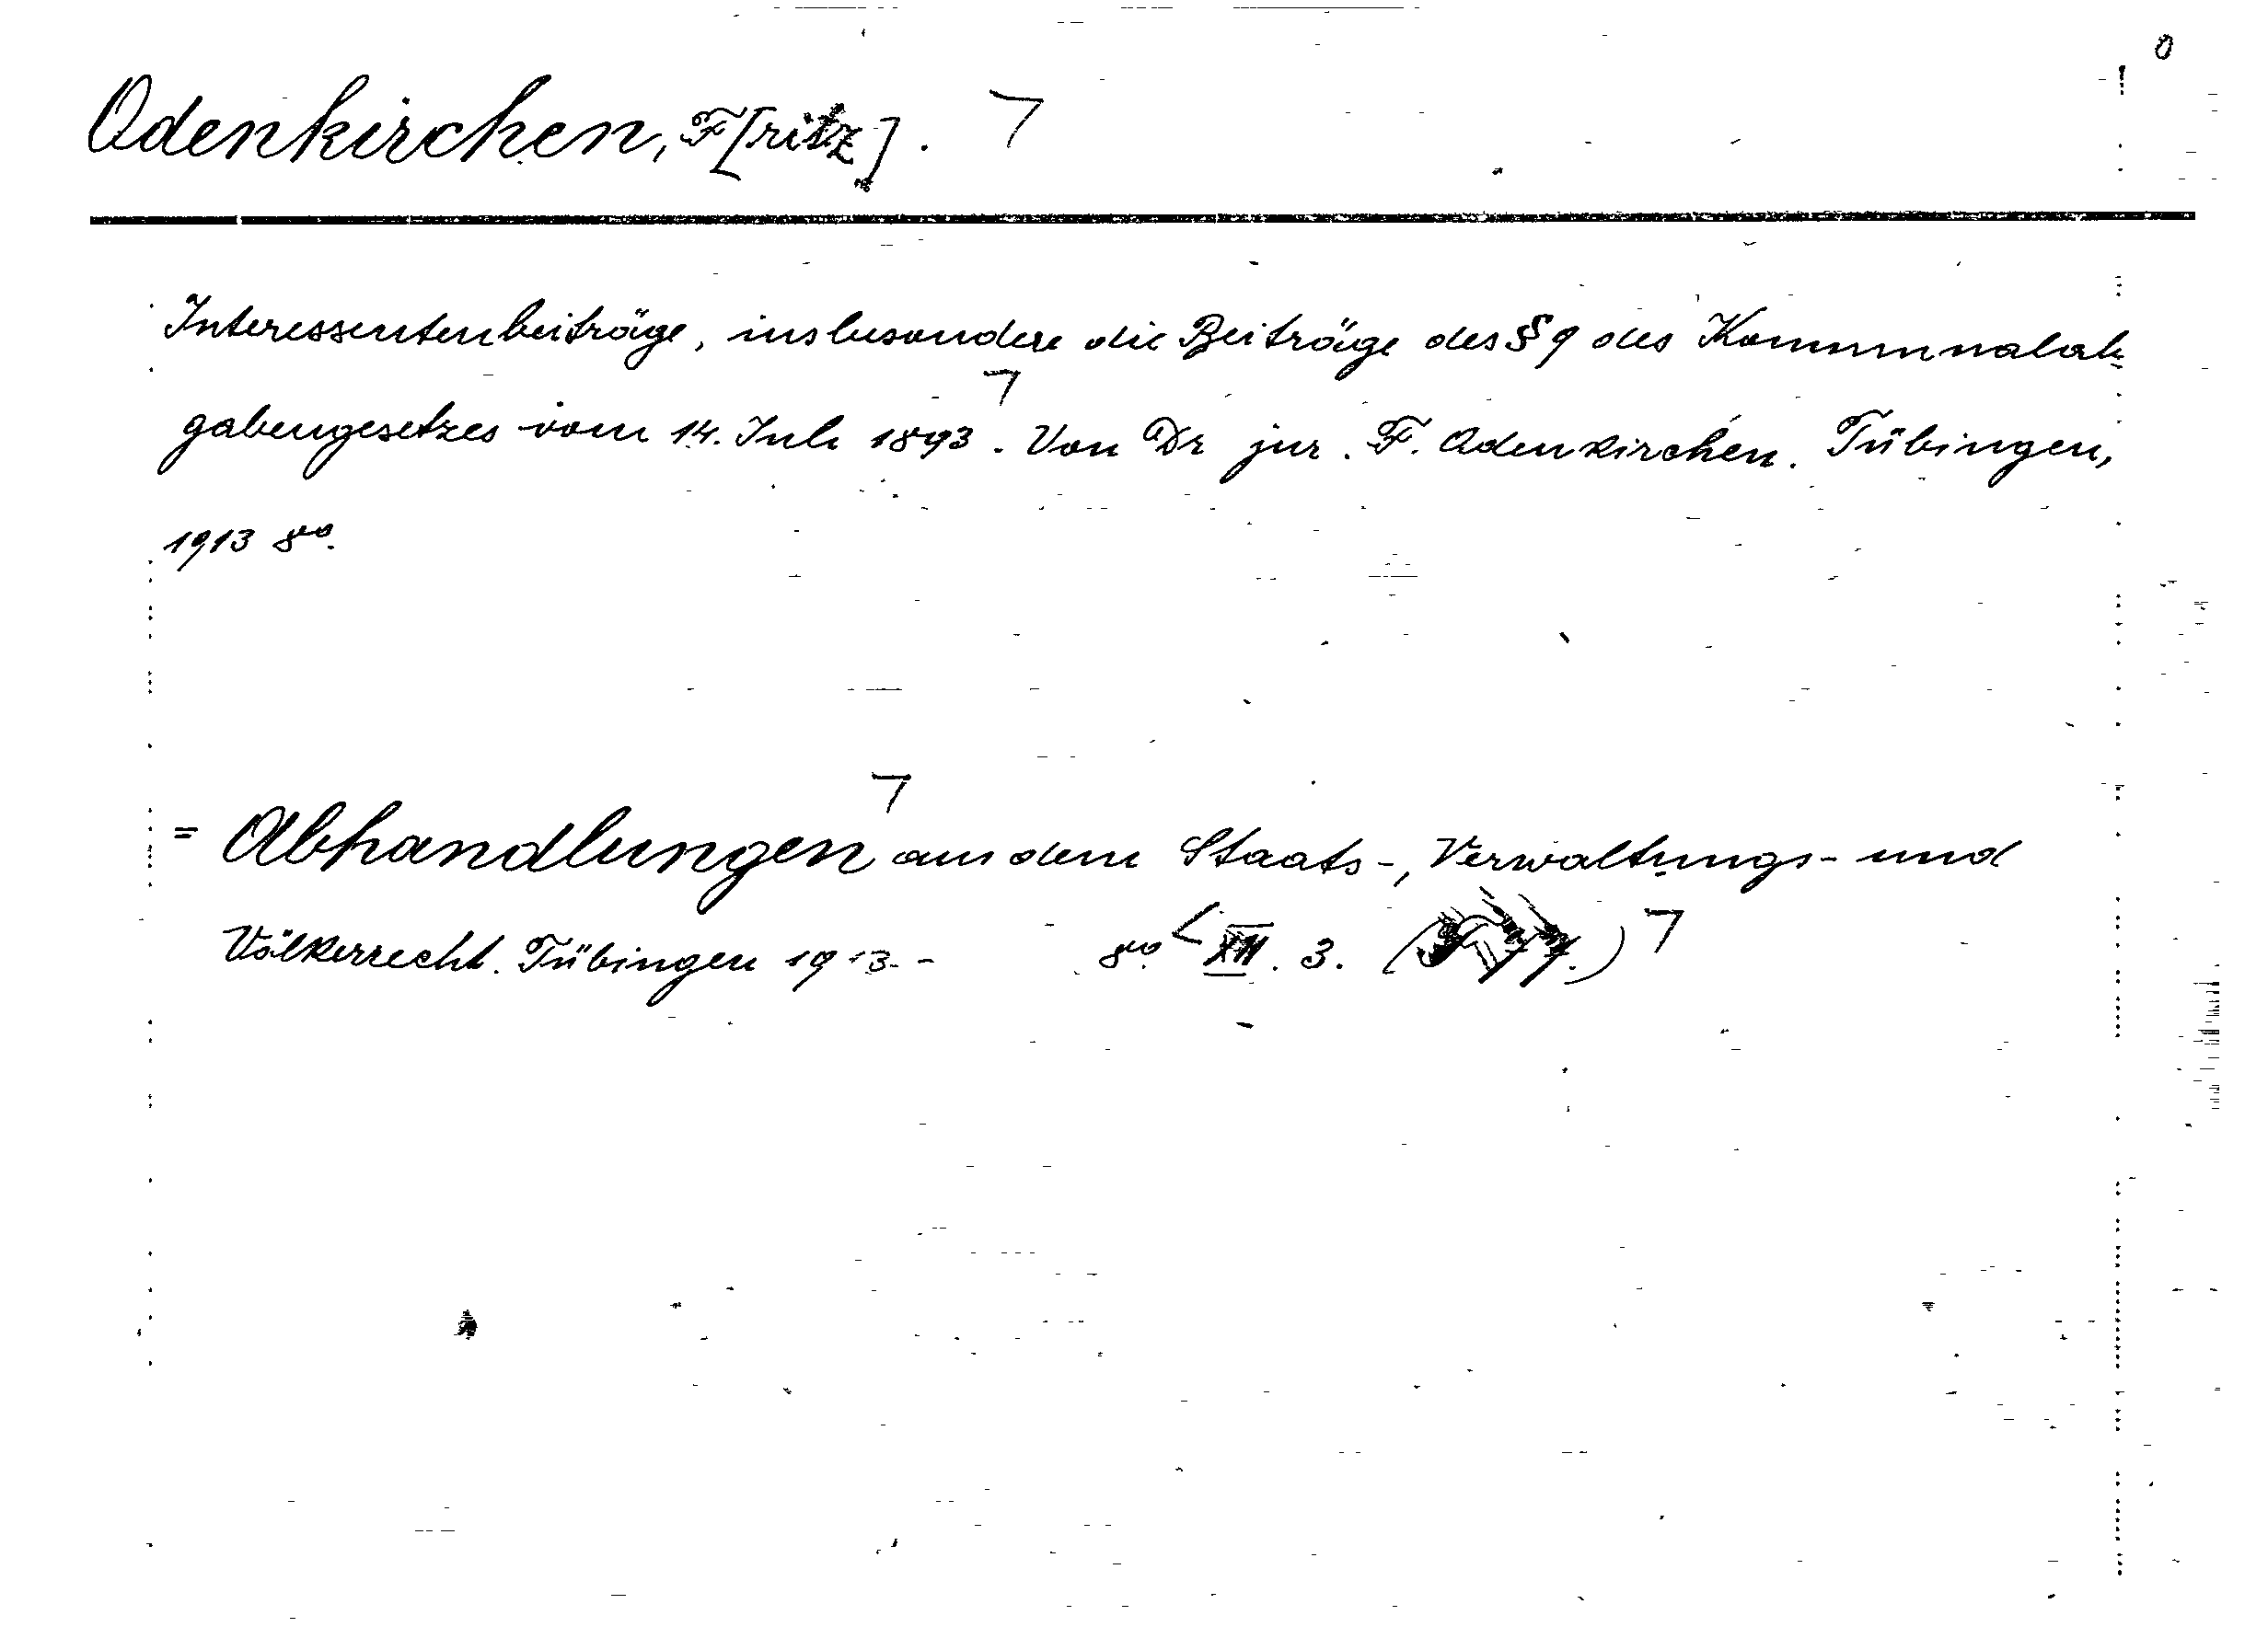 0
Odenkirchen, F[ritz]. ┐
Interessentenbeiträge, insbesondere die Beiträge des § 9 des Kommunalab-
gabengesetzes vom 14. Juli 1893┐. Von Dr jur. F. Odenkirchen. Tübingen,
1913 8vo.
= Abhandlungen┐ aus dem Staats-, Verwaltungs- und
Völkerrecht. Tübingen 1913 - 8vo. < XII. 3. ( ) ┐